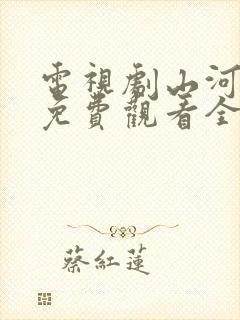 電視劇山河
免費觀看全
蔡紅蓮